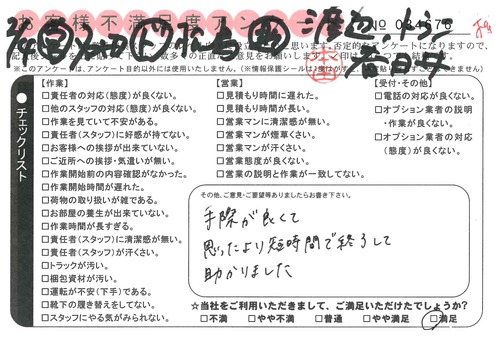 お客様不満足度アンケート
№ 064676
※このアンケートは、アンケート目的以外には使用いたしません。
チェックリスト
【作業】
□責任者の対応(態度)が良くない。
□他のスタッフの対応(態度)が良くない。
□作業を見ていて不安がある。
□責任者(スタッフ)に好感が持てない。
□お客様への挨拶が出来ていない。
□ご近所への挨拶・気遣いが無い。
□作業開始前の内容確認がなかった。
□作業開始時間が遅れた。
□荷物の取り扱いが雑である。
□お部屋の養生が出来ていない。
□作業時間が長すぎる。
□責任者(スタッフ)に清潔感が無い。
□責任者(スタッフ)が汗くさい。
□トラックが汚い。
□梱包資材が汚い。
□運転が不安(下手)である。
□靴下の履き替えをしてない。
□スタッフにやる気がみられない。
【営業】
□見積もり時間に遅れた。
□見積もり時間が長い。
□営業マンに清潔感が無い。
□営業マンが煙草くさい。
□営業マンが汗くさい。
□営業態度が良くない。
□営業の説明と作業が一致してない。
【受付・その他】
□電話の対応が良くない。
□オプション業者の説明
・作業が良くない。
□オプション業者の対応
(態度)が良くない。
その他、ご意見・ご要望等ありましたらお書き下さい。
手際が良くて
思ったより短時間で終了して
助かりました
☆当社をご利用いただきまして、ご満足いただけたでしょうか?
□不満 □やや不満 □普通 □やや満足 □満足